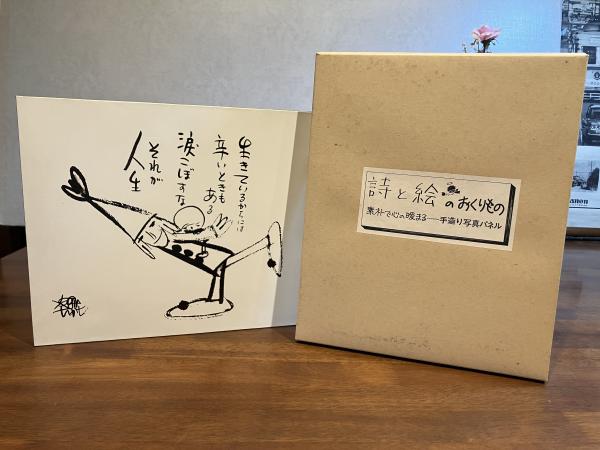 生きているからには
辛いときも
ある
涙こぼすな
それが
人生
詩と絵のおくりもの
素朴で心の暖まる──手造り写真パネル
Canon